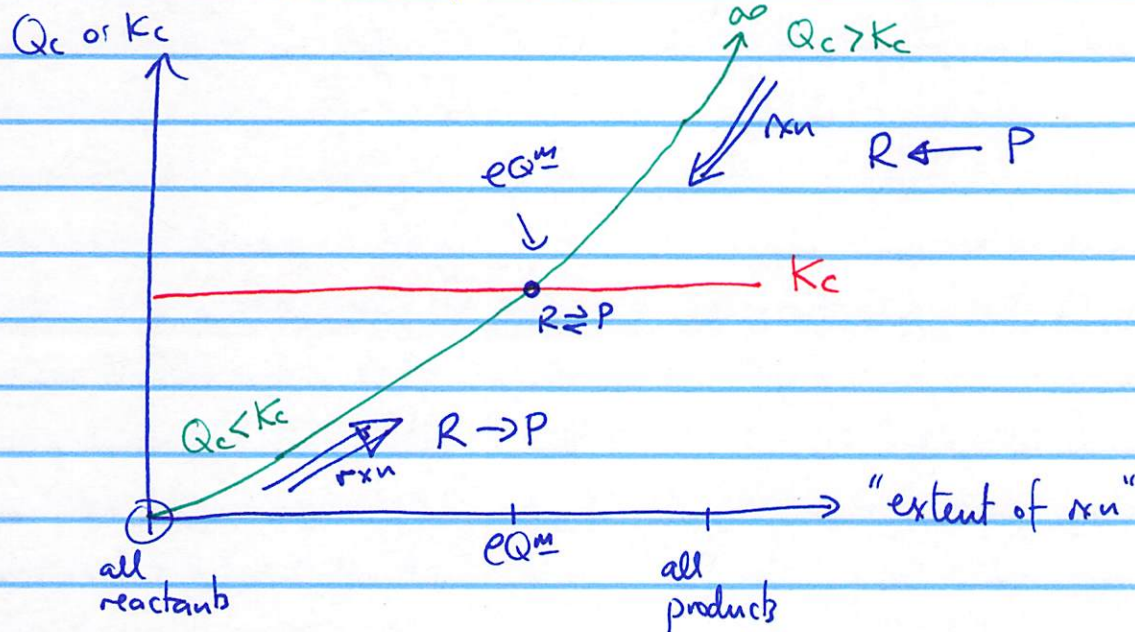 Qc or Kc
∞ Qc > Kc
rxn
R ← P
eQm
Kc
R ⇌ P
Qc < Kc
R → P
rxn
"extent of rxn"
eQm
all reactants
all products